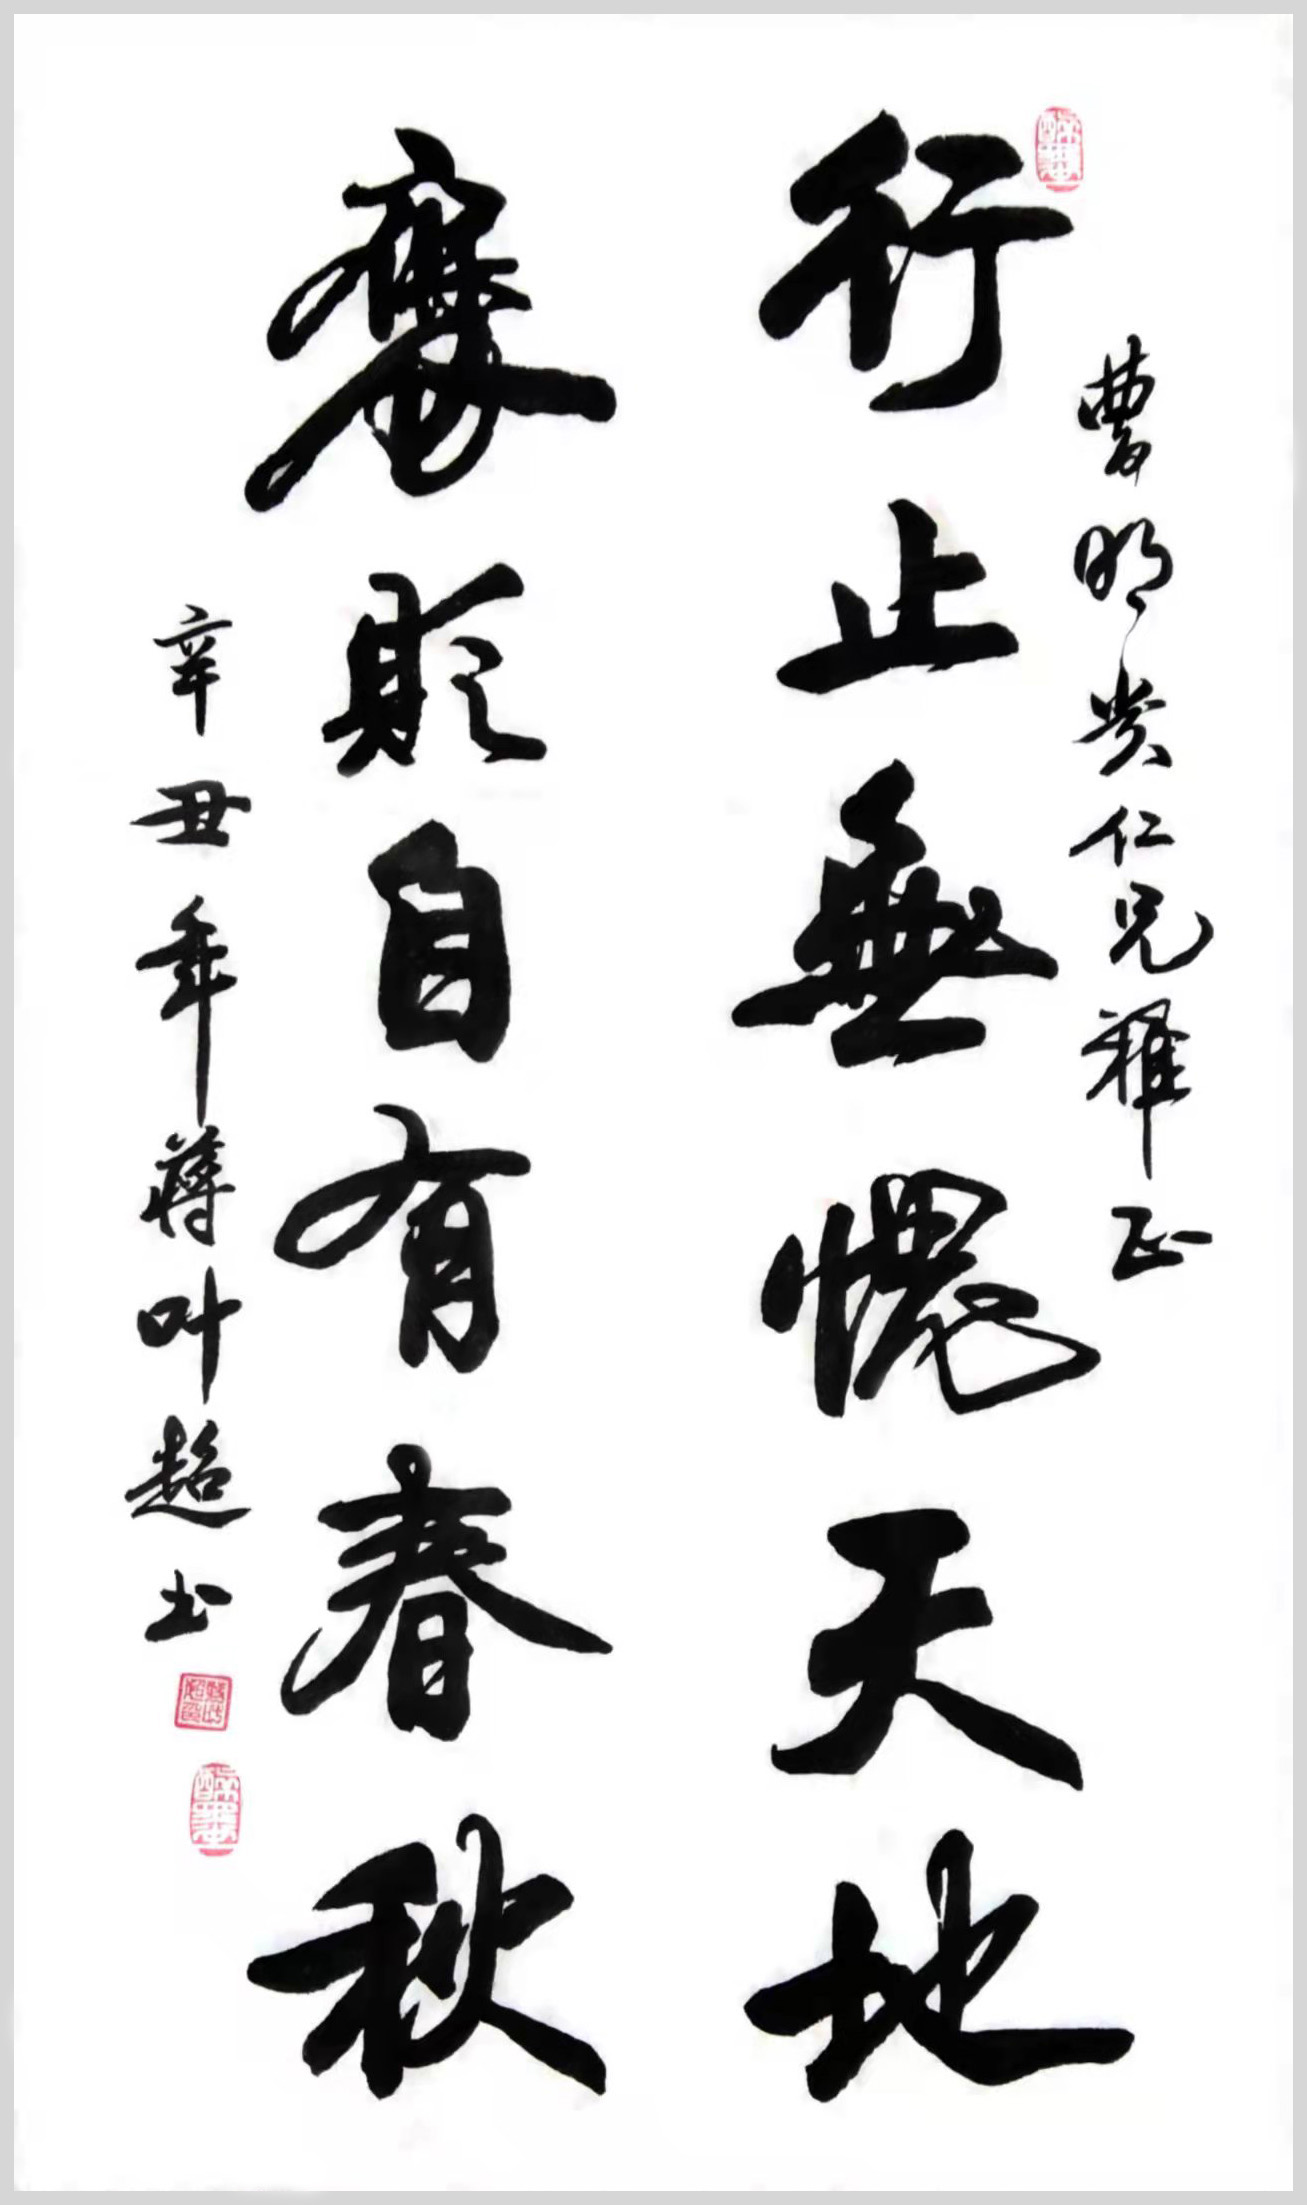 曹明仁兄雅正
行止無愧天地
褒貶自有春秋
辛丑年蒋叶超书